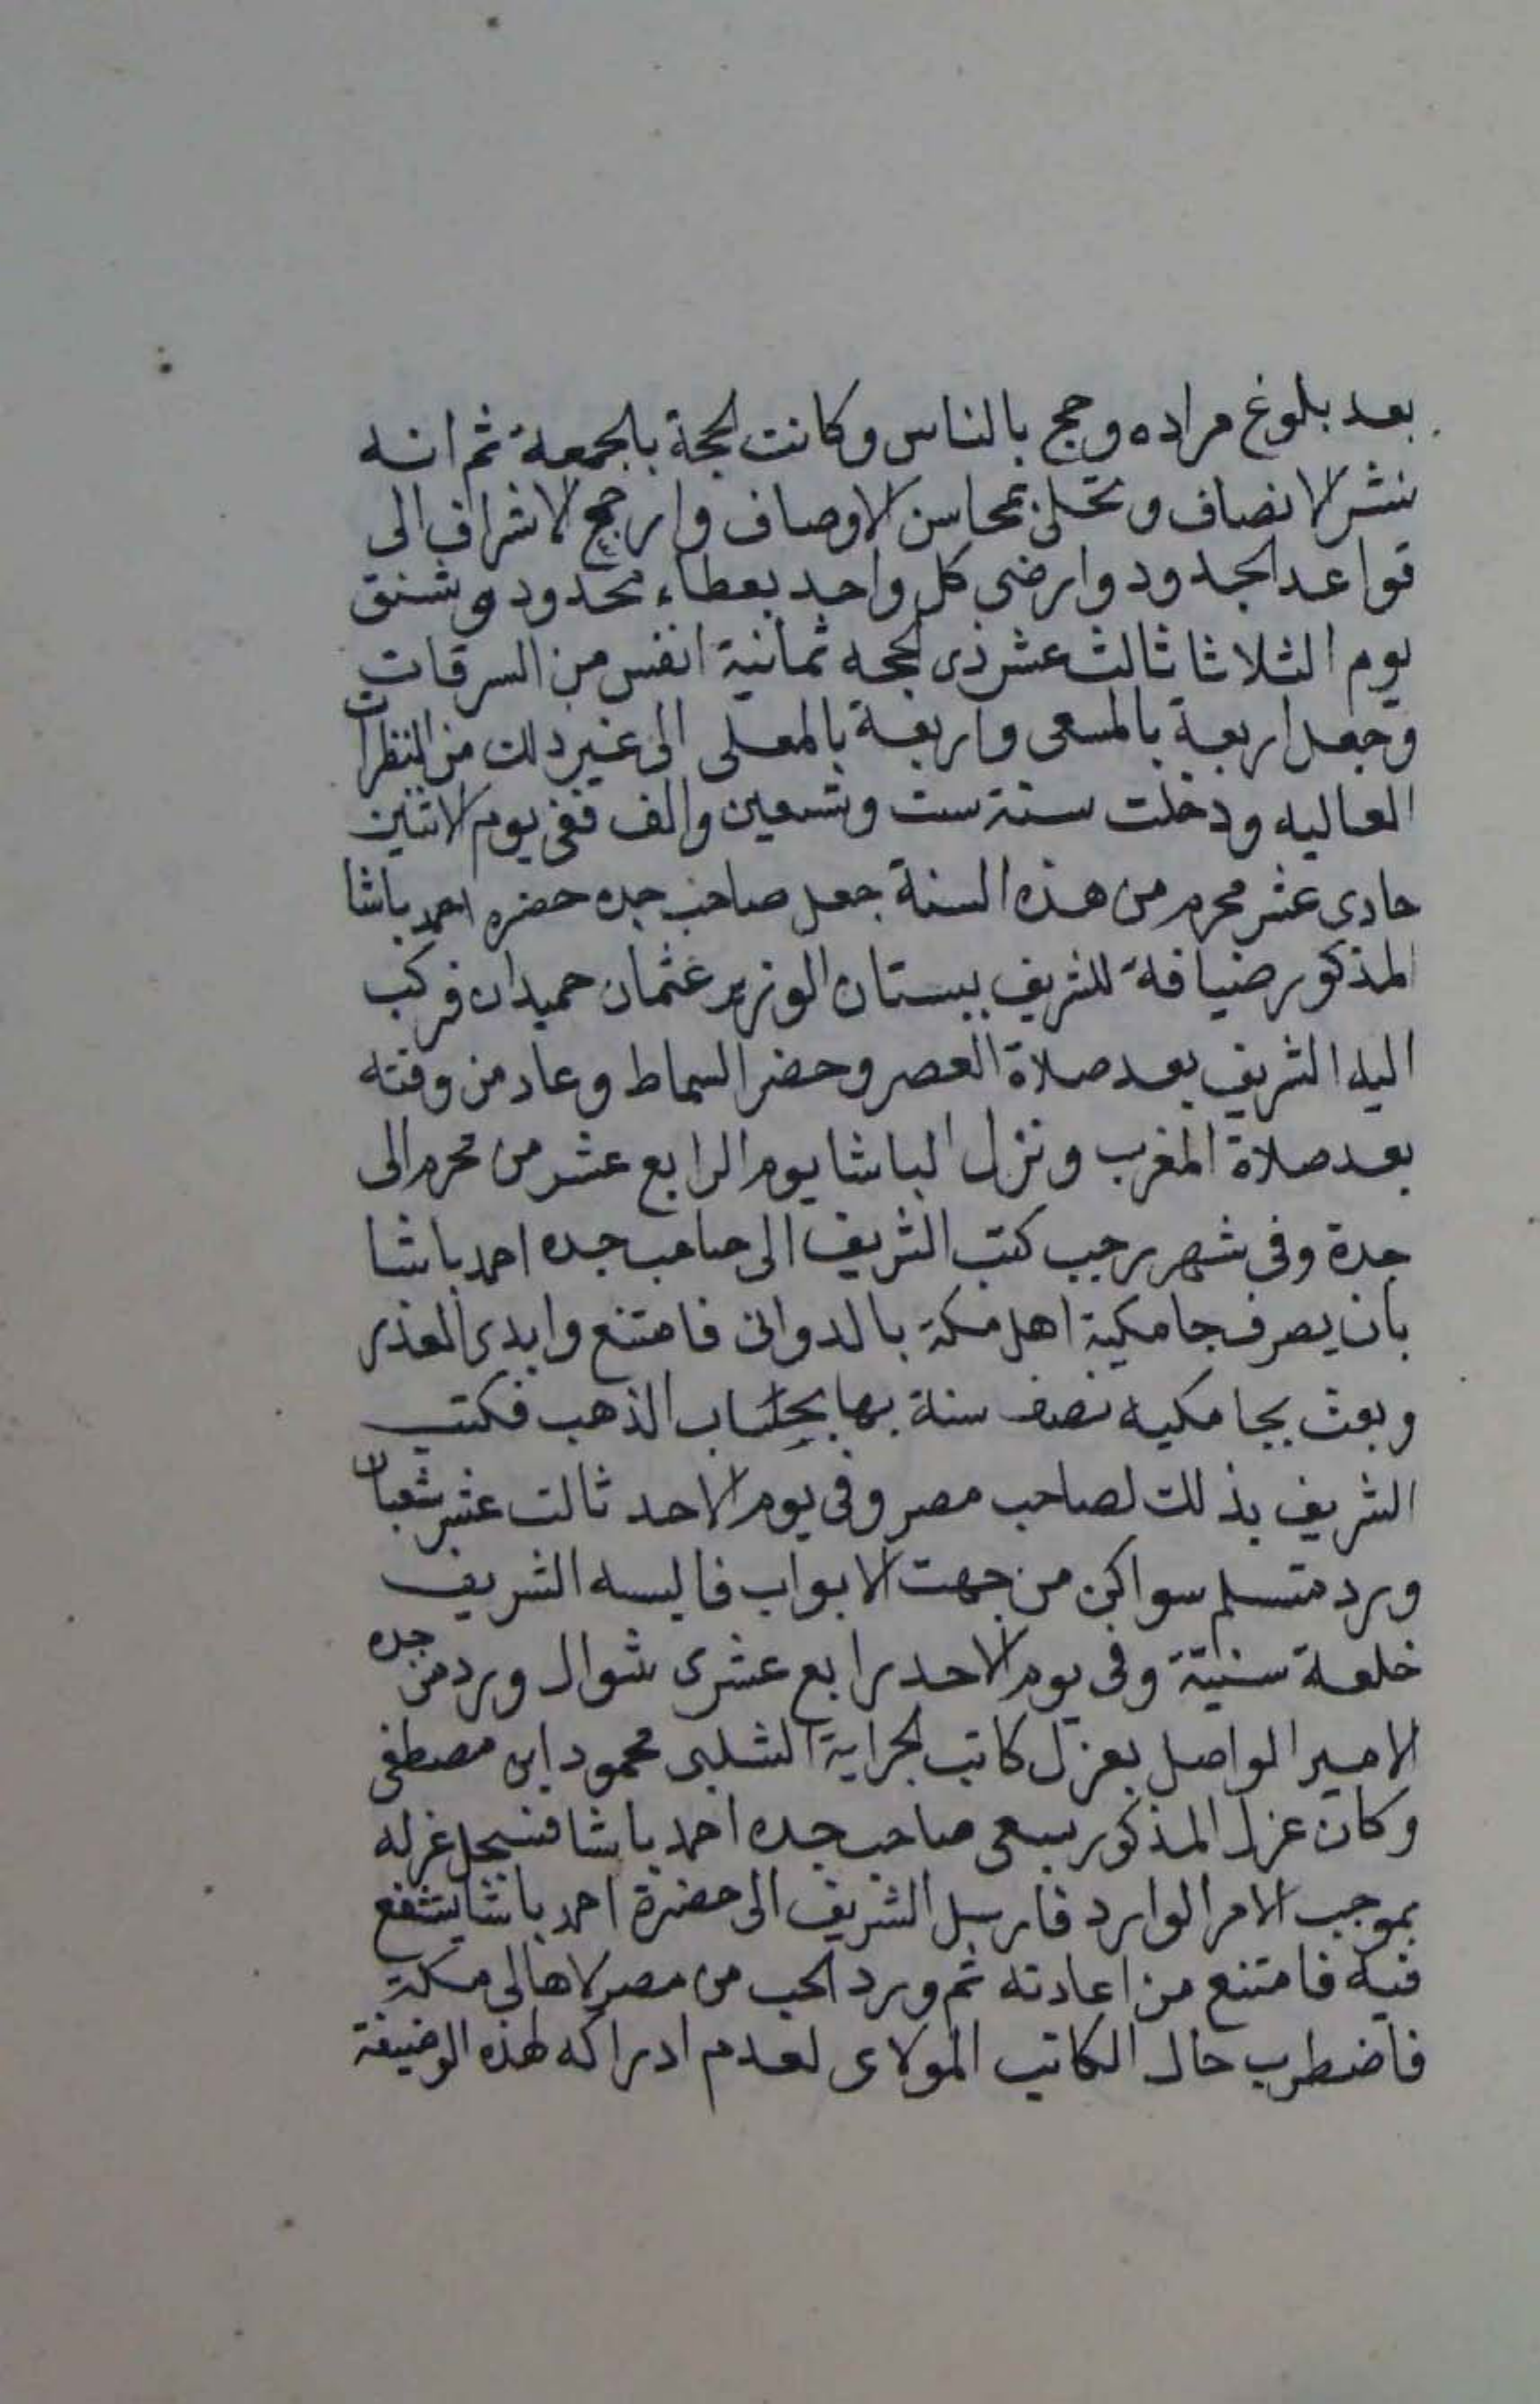 بعد بلوغ مراده وحج بالناس وكانت الحجة بالجمعة ثم انه
نشر الانصاف وتحلى بمحاسن الاوصاف وارجع الاشراف الى
قواعد الجدود وارضى كل واحد بعطاء محدود وشنق
يوم الثلاثا ثالث عشر ذى الحجه ثمانية انفس من السرقات
وجعل اربعة بالمسعى واربعة بالمعلى الى غير ذلك من النظرات
العاليه ودخلت سنة ست وتسعين والف ففى يوم الاثنين
حادى عشر محرم من هذه السنة جعل صاحب جده حضره احمد باشا
المذكور ضيافة للشريف ببستان الوزير عثمان حميدان فركب
اليه الشريف بعد صلاة العصر وحضر السماط وعاد من وقته
بعد صلاة المغرب ونزل الباشا يوم الرابع عشر من محرم الى
جدة وفى شهر رجب كتب الشريف الى صاحب جده احمد باشا
بان يصرف جامكية اهل مكة بالدوانى فامتنع وابدى العذر
وبعث بجامكيه نصف سنة بها بحساب الذهب فكتب
الشريف بذلك لصاحب مصر وفى يوم الاحد ثالث عشر شعبان
ورد متسلم سواكن من جهت الابواب فالبسه الشريف
خلعة سنية وفى يوم الاحد رابع عشرى شوال ورد من جده
الامير الواصل بعزل كاتب الجراية الشلبى محمود ابن مصطفى
وكان عزل المذكور بسعى صاحب جده احمد باشا فسجل عزله
بموجب الامر الوارد فارسل الشريف الى حضرة احمد باشا يتشفع
فيه فامتنع من اعادته ثم ورد الحب من مصر لاهالى مكة
فاضطرب حال الكاتب المولاى لعدم ادراكه لهذه الوضيفة